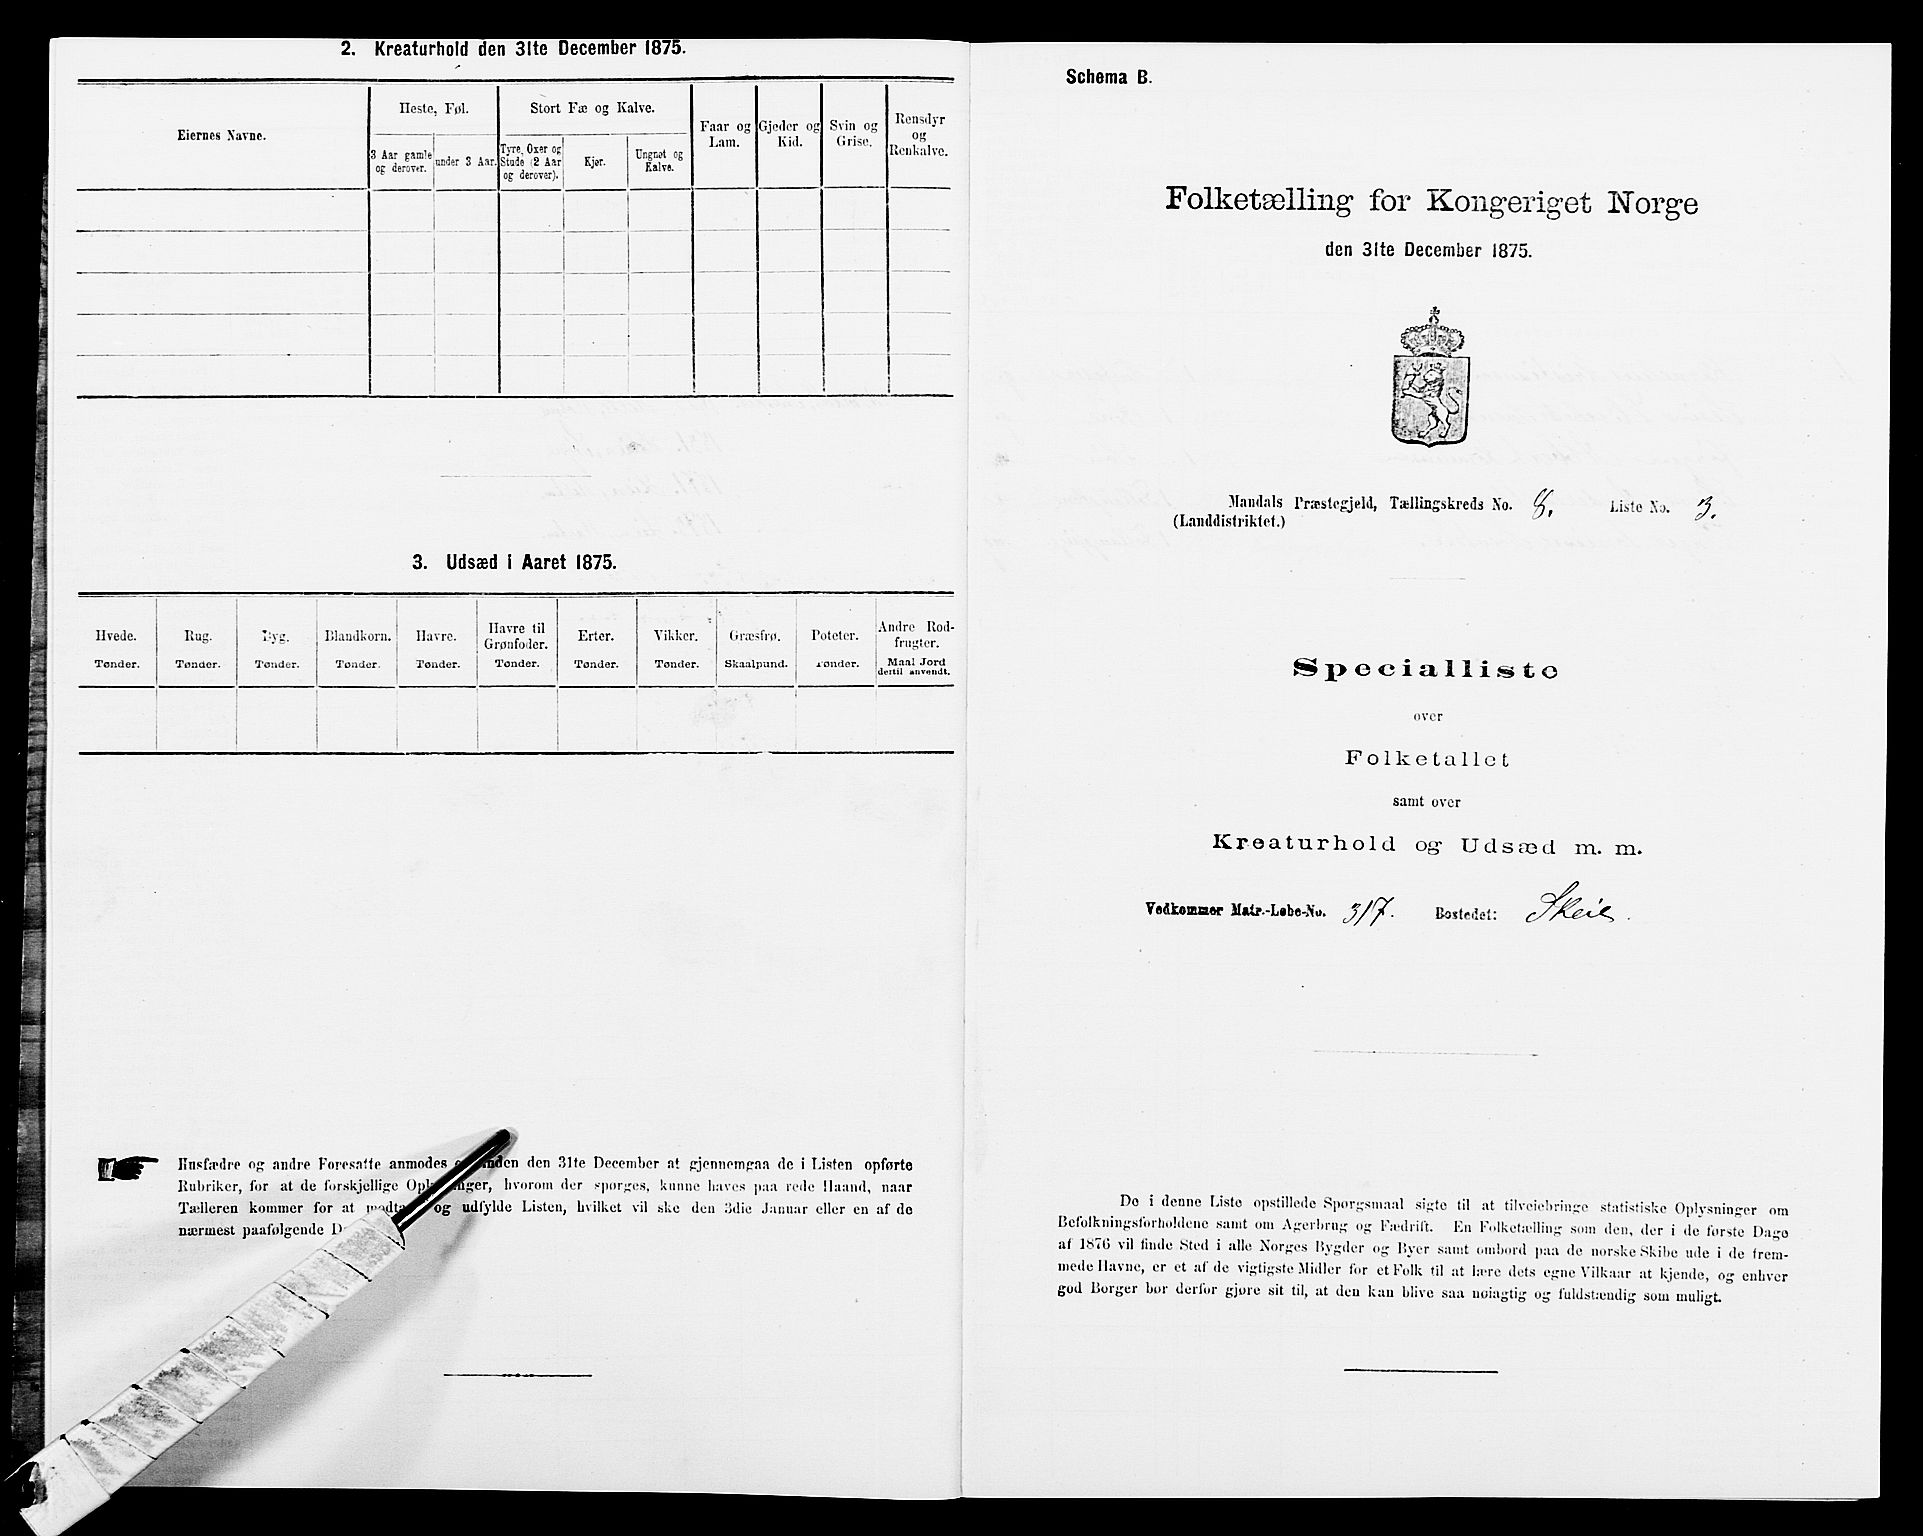 2. Kreaturhold den 31te December 1875.
Eiernes Navne.
Heste, Føl.
3 Aar gamle og derover.
under 3 Aar.
Stort Fæ og Kalve.
Tyre, Oxer og Stude (2 Aar og derover).
Kjør.
Ungnøt og Kalve.
Faar og Lam.
Gjeder og Kid.
Svin og Grise.
Rensdyr og Renkalve.
3. Udsæd i Aaret 1875.
Hvede. Tønder.
Rug. Tønder.
Byg. Tønder.
Blandkorn. Tønder.
Havre. Tønder.
Havre til Grønfoder. Tønder.
Erter. Tønder.
Vikker. Tønder.
Græsfrø. Skaalpund.
Poteter. Tønder.
Andre Rodfrugter. Maal Jord dertil anvendt.
Husfædre og andre Foresatte anmodes den 31te December at gjennemgaa de i Listen opførte
Rubriker, for at de forskjellige hvorom der spørges, kunne haves paa rede Haand, naar
Tælleren kommer for at og udfylde Listen, hvilket vil ske den 3die Januar eller en af de
nærmest paafølgende
Schema B.
Folketælling for Kongeriget Norge
den 31te December 1875.
Mandals Præstegjeld, Tællingskreds No. 8. Liste No. 3.
(Landdistriktet.)
Specialliste
over
Folketallet
samt over
Kreaturhold og Udsæd m. m.
Vedkommer Matr.-Løbe-No. 317. Bostedet: Skeie.
De i denne Liste opstillede Spørgsmaal sigte til at tilveiebringe statistiske Oplysninger om
Befolkningsforholdene samt om Agerbrug og Fædrift. En Folketælling som den, der i de første Dage
af 1876 vil finde Sted i alle Norges Bygder og Byer samt ombord paa de norske Skibe ude i de frem-
mede Havne, er et af de vigtigste Midler for et Folk til at lære dets egne Vilkaar at kjende, og enhver
god Borger bør derfor gjøre sit til, at den kan blive saa nøiagtig og fuldstændig som muligt.